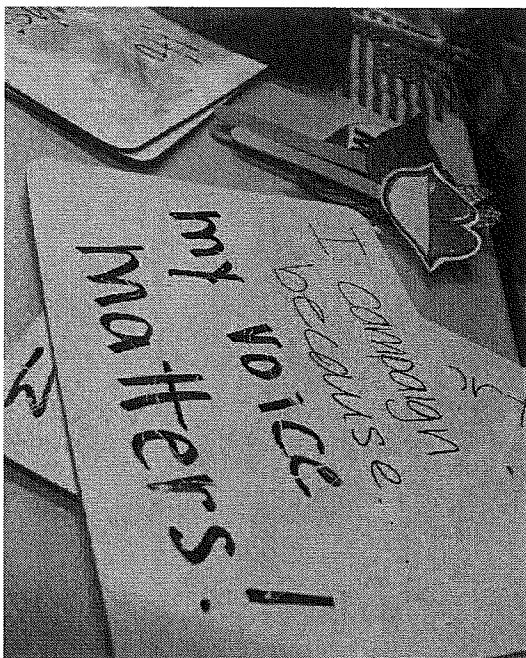 I campaign
because...
my voice
matters!